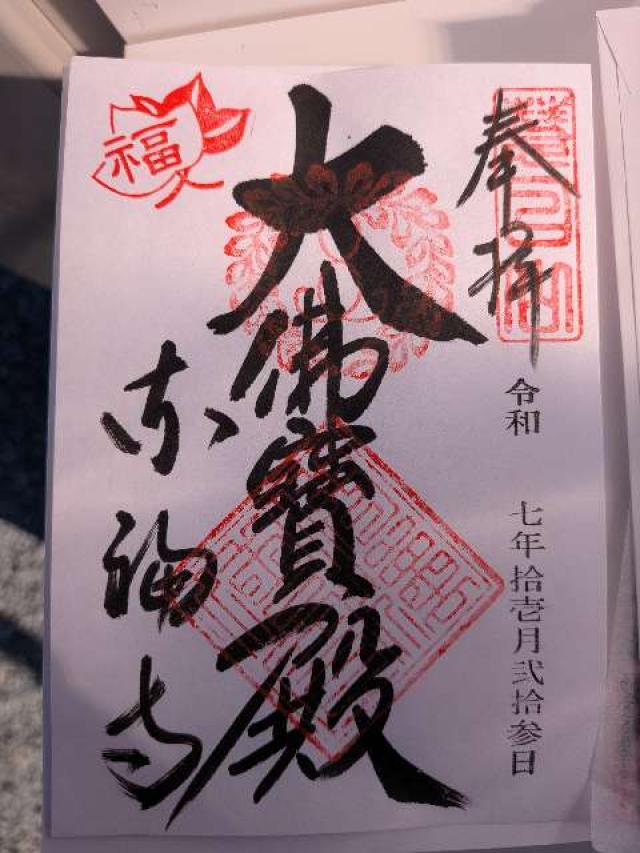 奉拝
令和 七年拾壱月弐拾参日
大佛寶殿
東福寺
福